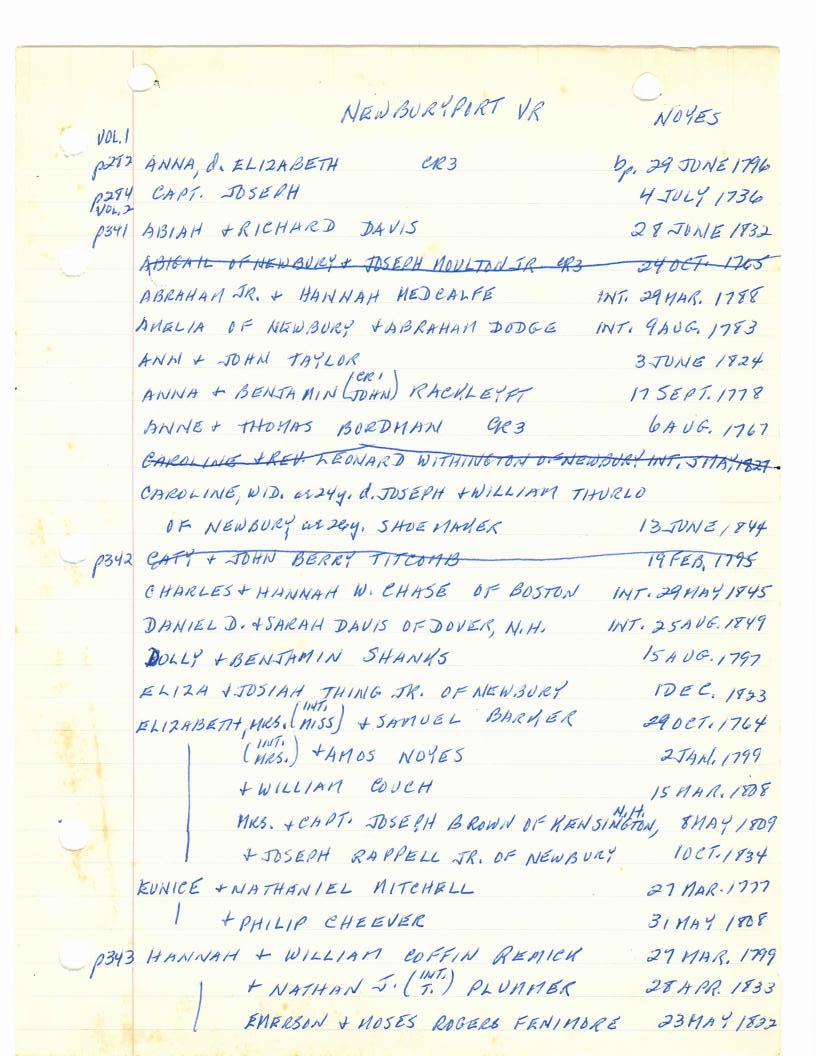 NEWBURYPORT VR NOYES
VOL.1
p282 ANNA, d. ELIZABETH CR3 bp. 29 JUNE 1796
p284 CAPT. JOSEPH 4 JULY 1736
VOL.2
p341 ABIAH + RICHARD DAVIS 28 JUNE 1832
ABIGAIL OF NEWBURY + JOSEPH MOULTON JR. CR3 24 OCT. 1765
ABRAHAM JR. + HANNAH MEDCALFE INT. 29 MAR. 1788
AMELIA OF NEWBURY + ABRAHAM DODGE INT. 9 AUG. 1783
ANN + JOHN TAYLOR 3 JUNE 1824
ANNA + BENJAMIN (CR1 JOHN) RACKLEYFT 17 SEPT. 1778
ANNE + THOMAS BORDMAN CR3 6 AUG. 1767
CAROLINE + REV. LEONARD WITHINGTON OF NEWBURY INT. 5 MAY, 1827
CAROLINE, WID. ae 24y. d. JOSEPH + WILLIAM THURLO
OF NEWBURY ae 26y. SHOEMAKER 13 JUNE, 1844
p342 CATY + JOHN BERRY TITCOMB 19 FEB, 1795
CHARLES + HANNAH W. CHASE OF BOSTON INT. 29 MAY 1845
DANIEL D. + SARAH DAVIS OF DOVER, N.H. INT. 25 AUG. 1849
DOLLY + BENJAMIN SHANKS 15 AUG. 1797
ELIZA + JOSIAH THING JR. OF NEWBURY 1 DEC. 1823
ELIZABETH, MRS. (INT. MISS) + SAMUEL BARKER 29 OCT. 1764
(INT. MRS.) + AMOS NOYES 2 JAN. 1799
+ WILLIAM COUCH 15 MAR. 1808
MRS. + CAPT. JOSEPH BROWN OF KENSINGTON, N.H. 8 MAY 1809
+ JOSEPH RAPPELL JR. OF NEWBURY 1 OCT. 1834
EUNICE + NATHANIEL MITCHELL 27 MAR. 1777
+ PHILIP CHEEVER 31 MAY 1808
p343 HANNAH + WILLIAM COFFIN REMICK 27 MAR. 1799
+ NATHAN J. (INT. T.) PLUMMER 28 APR. 1833
EMERSON + MOSES ROGERS FENIMORE 23 MAY 1822